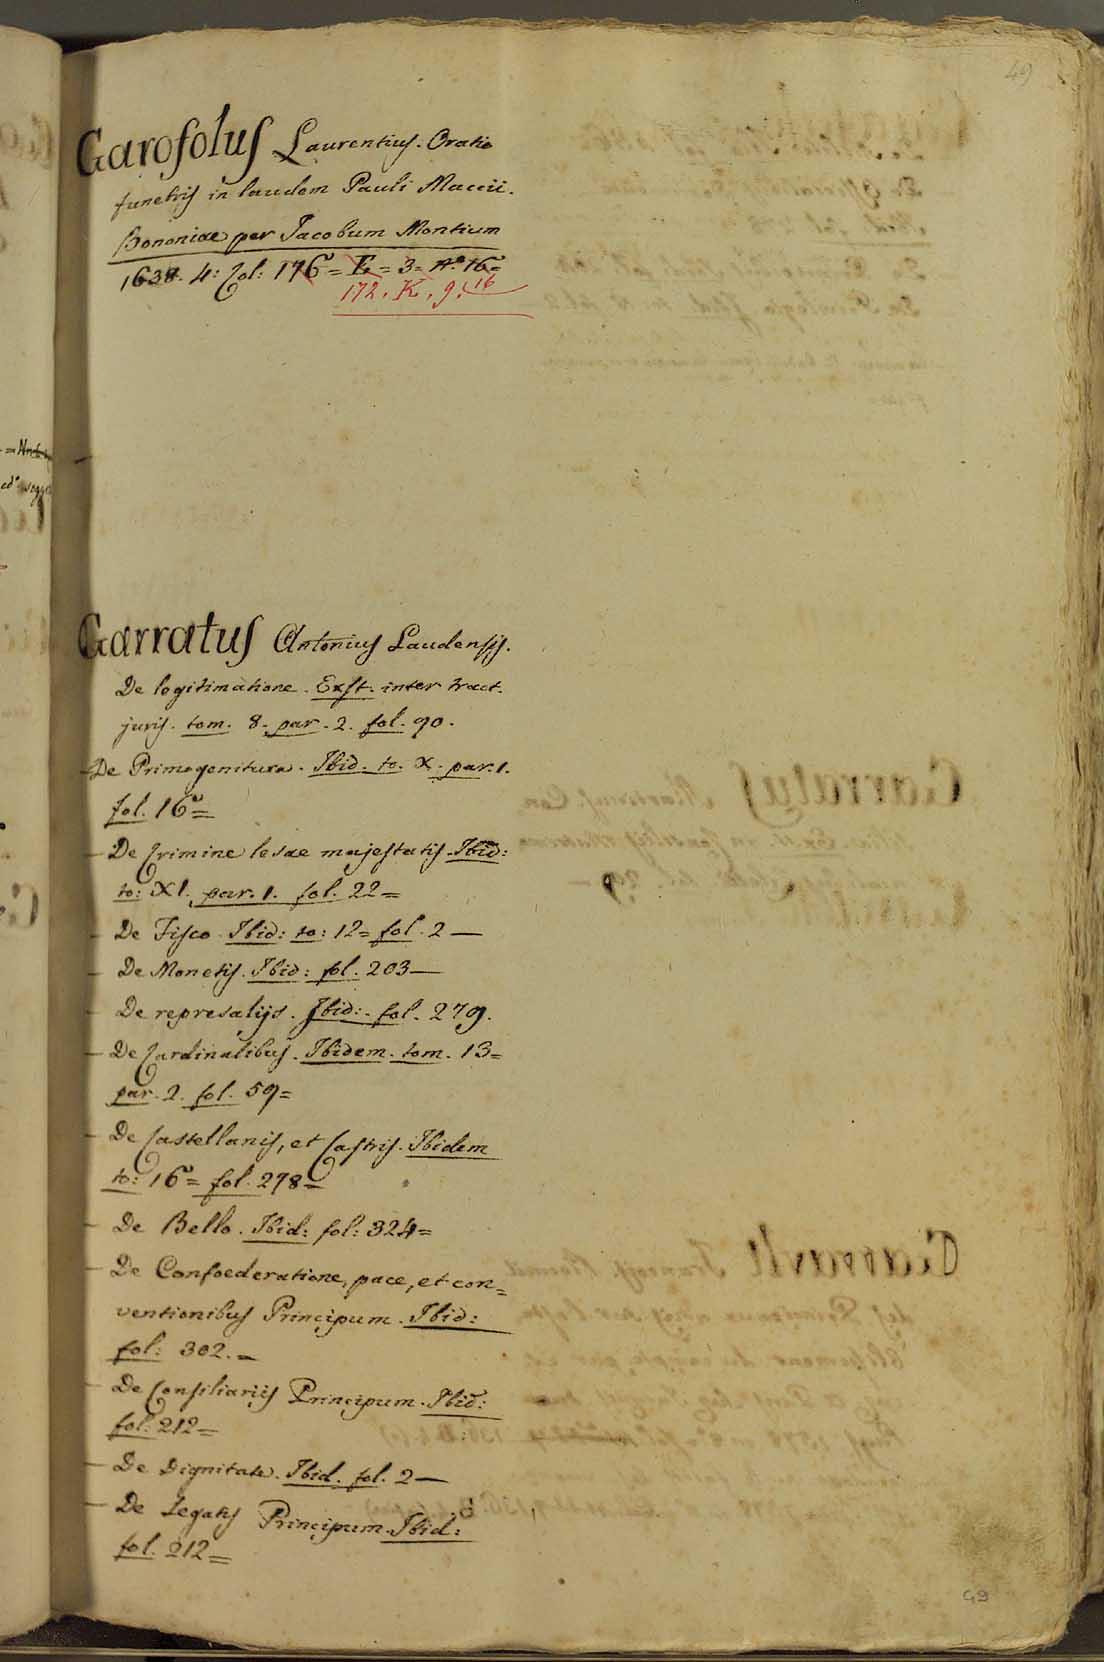 49
Garofolus Laurentius. Oratio
funebris in laudem Pauli Maccii.
Bononiae per Jacobum Montium
1638. 4: Col: 176 = E = 3 = N.º 16 =
172. K. 9. 16
Garratus Antonius Laudensis.
De legitimatione. Exst. inter tract.
juris. tom. 8. par. 2. fol. 90.
- De Primogenitura. Ibid. to. X. par. 1.
fol. 16 =
- De Crimine lesae majestatis. Ibid:
to: XI. par. 1. fol. 22 =
- De Fisco. Ibid: to: 12 = fol. 2 —
- De Monetis. Ibid: fol. 203 —
- De represalijs. Ibid: fol. 279.
- De Cardinalibus. Ibidem. tom. 13 =
par. 2. fol. 59 =
- De Castellanis, et Castris. Ibidem
to: 16 = fol. 298 =
- De Bello. Ibid: fol: 324 =
- De Confoederatione, pace, et con=
ventionibus Principum. Ibid:
fol: 302. =
- De Consiliariis Principum. Ibid:
fol: 212 =
- De Dignitate. Ibid. fol. 2 —
- De Legatis Principum. Ibid:
fol. 212 =
49